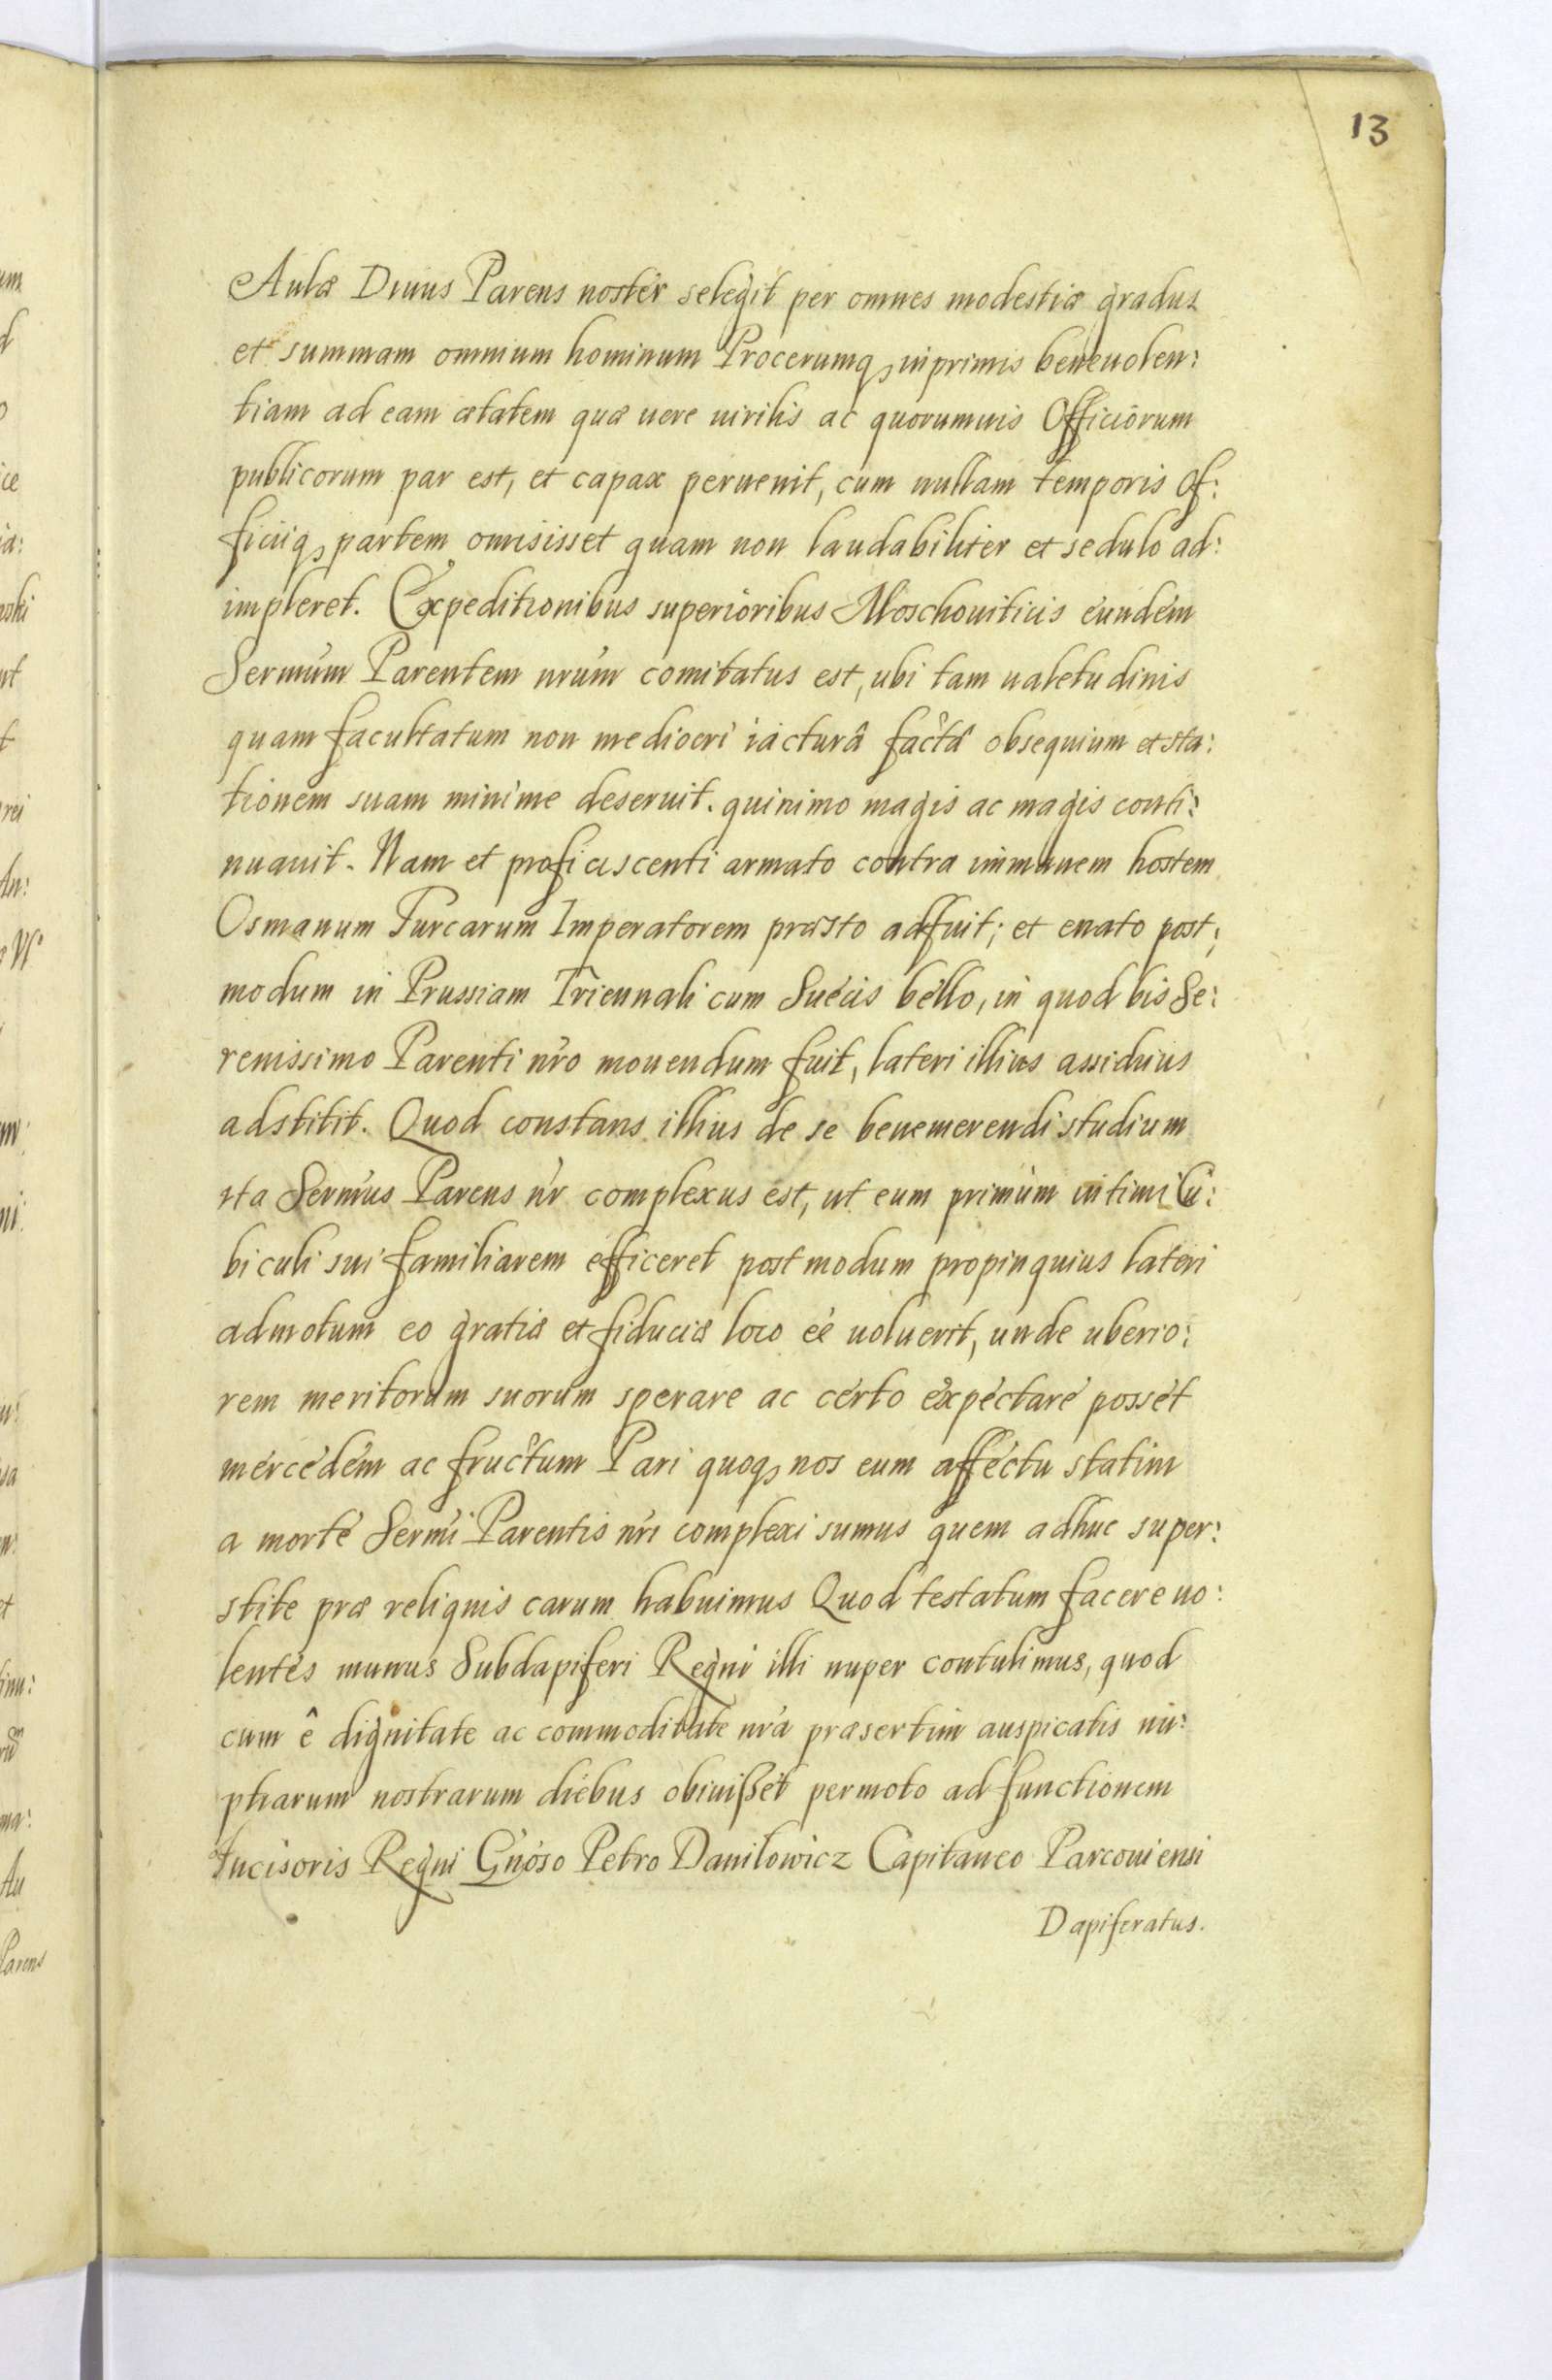 13
Aulæ Diuus Parens noster selegit per omnes modestiæ gradus
et summam omnium hominum Procerumq, inprimis beneuolen:
tiam ad eam ætatem quæ uere uirilis ac quorumuis Officiorum
publicorum par est, et capax peruenit, cum nullam temporis Of:
ficiiq, partem omisisset quam non laudabiliter et sedulo ad:
impleret. Expeditionibus superioribus Moschouiticis eundem
Sermum Parentem nrum comitatus est, ubi tam ualetudinis
quam facultatum non mediocri iacturâ factâ obsequium et sta:
tionem suam minime deseruit. quinimo magis ac magis conti:
nuauit. Nam et proficiscenti armato contra immanem hostem
Osmanum Turcarum Imperatorem præsto adfuit; et enato post:
modum in Prussiam Triennali cum Suecis bello, in quod bis Se:
renissimo Parenti nro mouendum fuit, lateri illius assiduus
adstitit. Quod constans illius de se benemerendi studium
ita Sermus Parens nr complexus est, ut eum primùm intimi Cu:
biculi sui familiarem efficeret postmodum propinquius lateri
admotum eo gratiæ et fiduciæ loco eé uoluerit, unde uberio:
rem meritorum suorum sperare ac certo expectare posset
mercedem ac fructum Pari quoq, nos eum affectu statim
a morte Sermi Parentis nri complexi sumus quem adhuc super:
stite præ reliquis carum habuimus Quod testatum facere uo:
lentes munus Subdapiferi Regni illi nuper contulimus, quod
cum ê dignitate ac commoditate nrâ præsertim auspicatis nu:
ptiarum nostrarum diebus obiuißet permoto ad functionem
Incisoris Regni Gnoso Petro Danilowicz Capitaneo Parcouiensi
Dapiferatus.